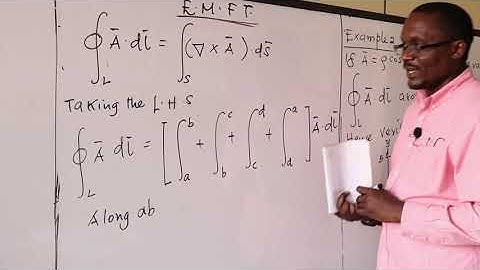 E.M.F.T.
∮_L Ā·dl̄ = ∫_S (∇ × Ā)·ds̄
Taking the L.H.S
∮_L Ā dl̄ = [∫_a^b + ∫_b^c + ∫_c^d + ∫_d^a] Ā dl̄
Along ab
Example 2
If Ā = ρ cos
∮_L Ā dl̄
Hence